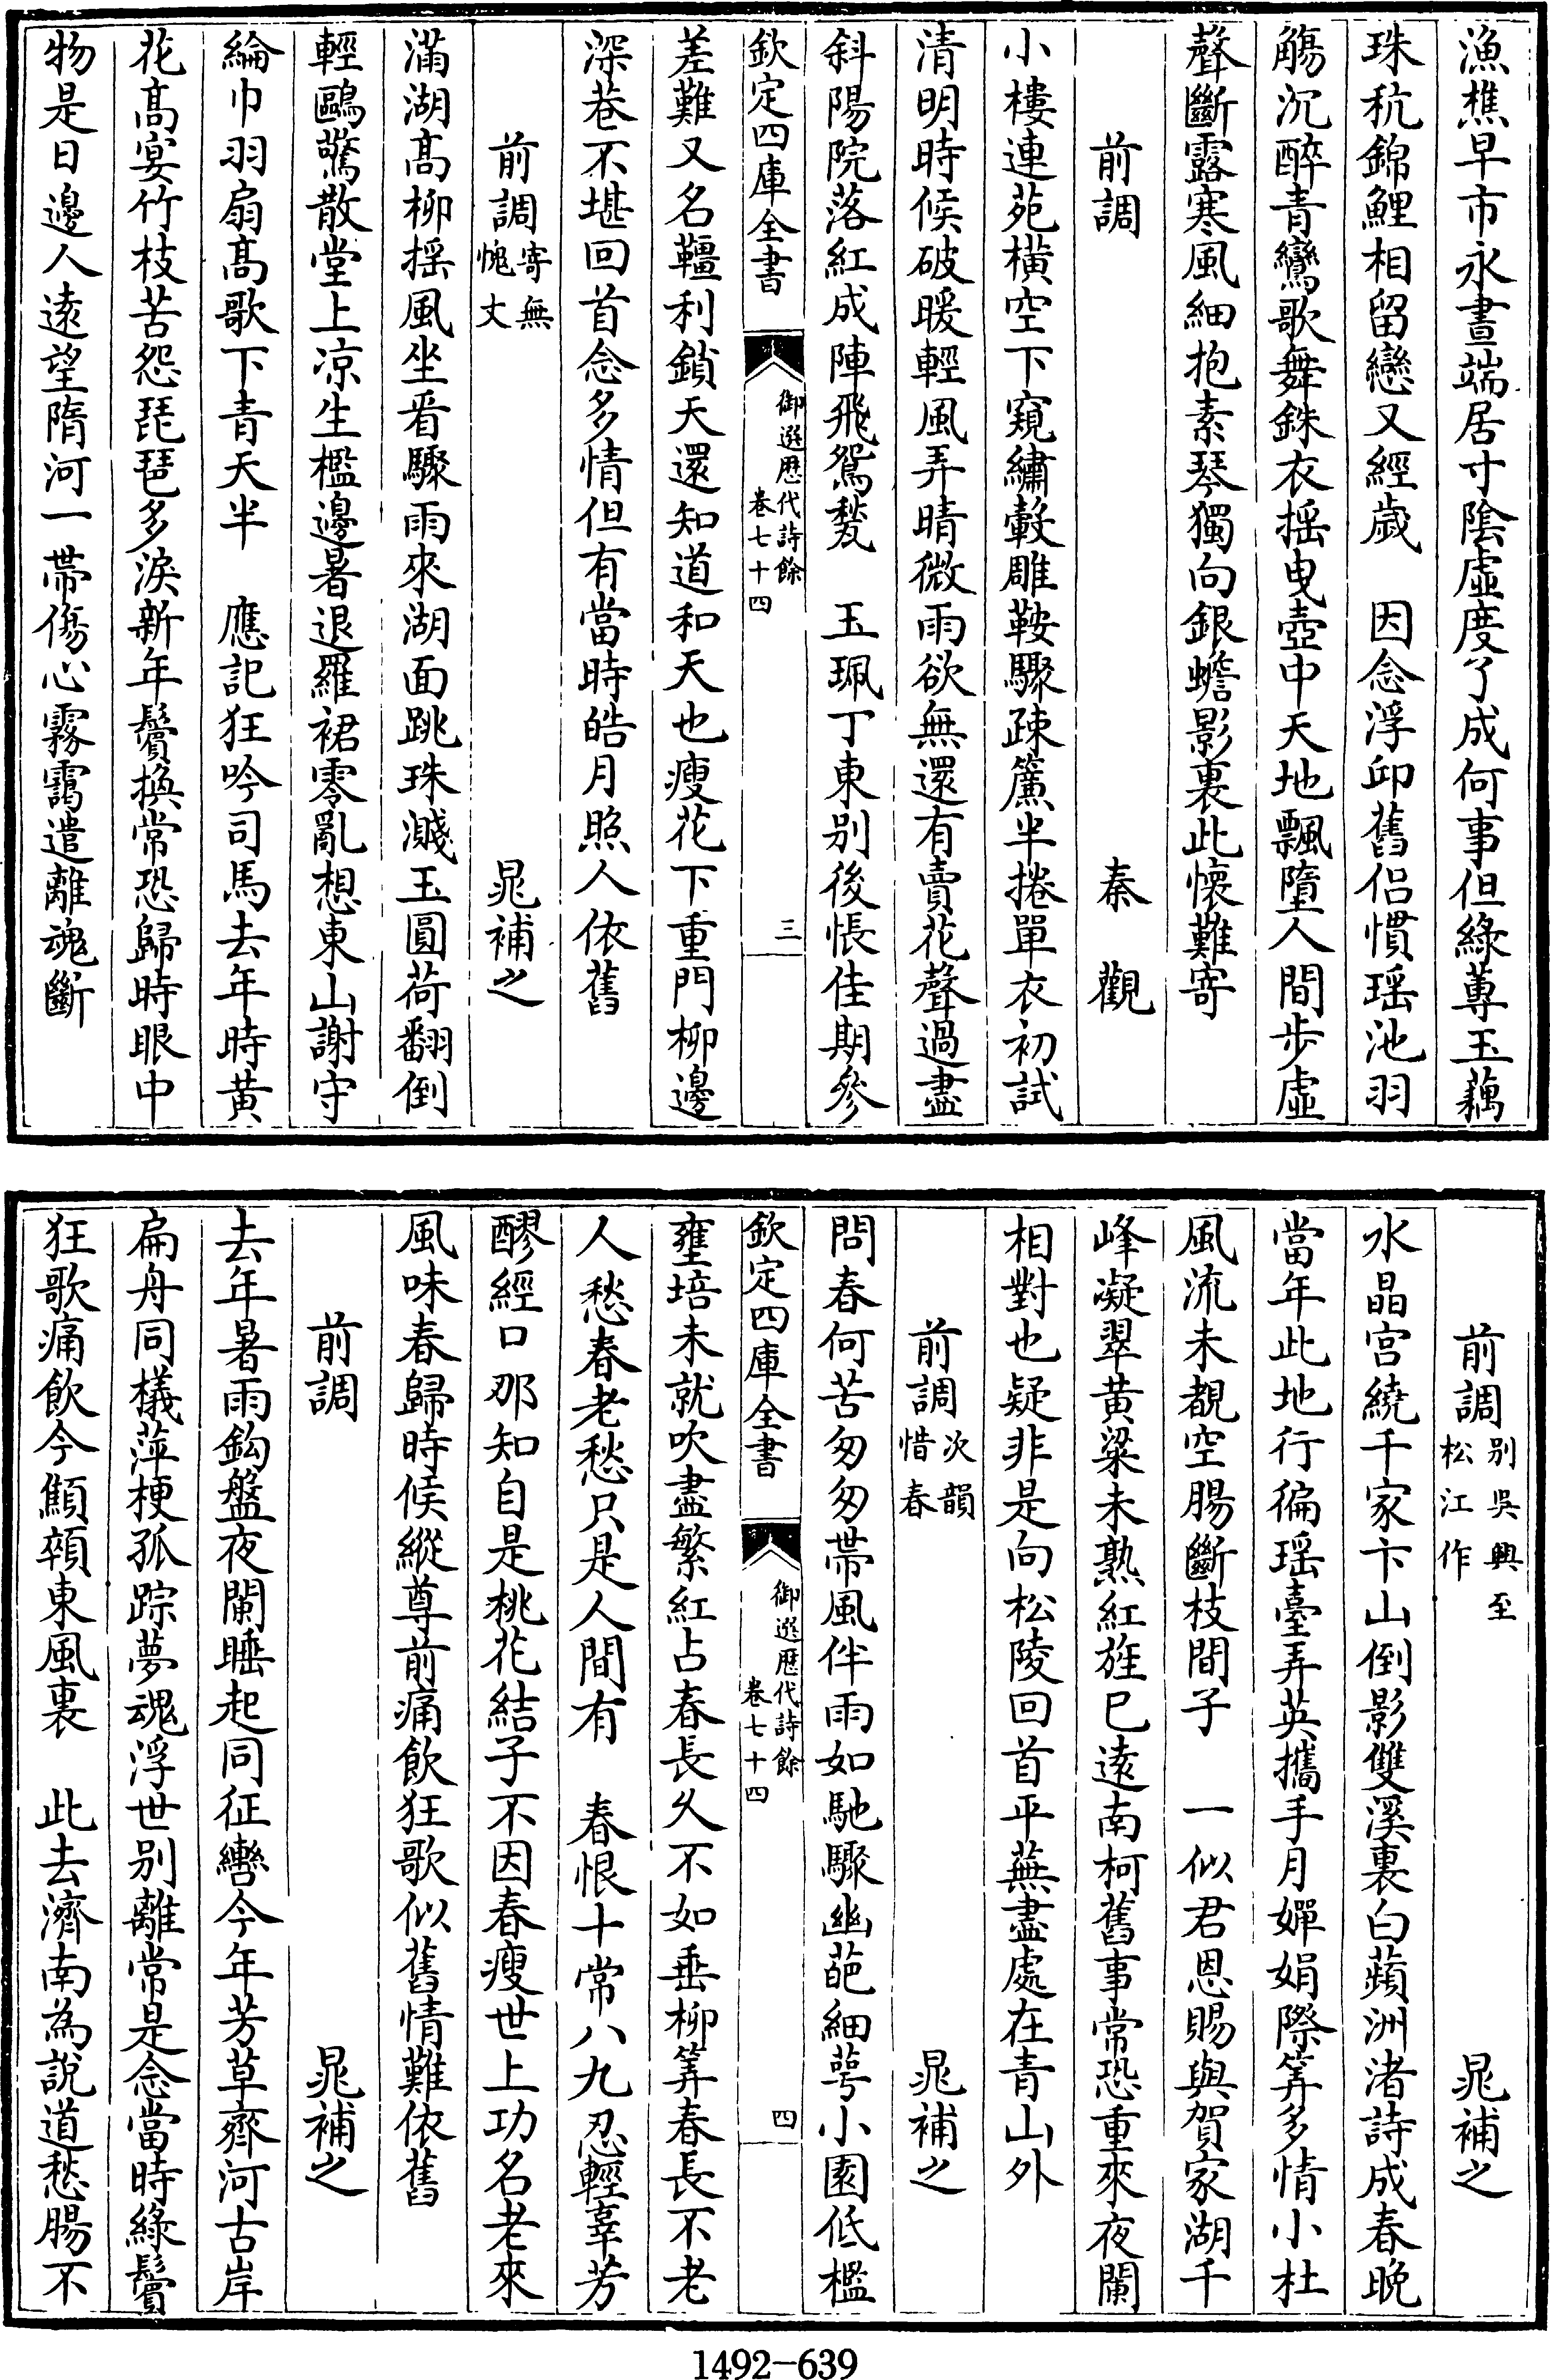 漁樵早市永晝端居寸陰虛度了成何事但綠蓴玉藕
珠秔錦鯉相留戀又經歲　因念浮邱舊侶慣瑶池羽
觴沉醉青鸞歌舞銖衣揺曳壺中天地飄墮人間步虛
聲斷露寒風細抱素琴獨向銀蟾影裏此懷難寄
前調　秦觀
小樓連苑橫空下窺繡轂雕鞍驟疎簾半捲單衣初試
清明時候破暖輕風弄晴微雨欲無還有賣花聲過盡
斜陽院落紅成陣飛鴛甃　玉珮丁東别後悵佳期參
欽定四庫全書　御選歷代詩餘　卷七十四　三
差難又名韁利鎖天還知道和天也瘦花下重門柳邊
深巷不堪回首念多情但有當時皓月照人依舊
前調寄無愧丈　晁補之
滿湖髙柳揺風坐看驟雨來湖面跳珠濺玉圓荷翻倒
輕鷗驚散堂上凉生檻邊暑退羅裙零亂想東山謝守
綸巾羽扇髙歌下青天半　應記狂吟司馬去年時黄
花髙宴竹枝苦怨琵琶多淚新年鬢換常恐歸時眼中
物是日邊人逺望隋河一帶傷心霧靄遣離魂斷
前調别吳興至松江作　晁補之
水晶宫繞千家卞山倒影雙溪裏白蘋洲渚詩成春晚
當年此地行徧瑶臺弄英攜手月嬋娟際筭多情小杜
風流未覩空腸斷枝間子　一似君恩賜與賀家湖千
峰凝翠黄粱未熟紅旌已逺南柯舊事常恐重來夜闌
相對也疑非是向松陵回首平蕪盡處在青山外
前調次韻惜春　晁補之
問春何苦匆匆帶風伴雨如馳驟幽葩細萼小園低檻
欽定四庫全書　御選歷代詩餘　卷七十四　四
壅培未就吹盡繁紅占春長久不如垂柳筭春長不老
人愁春老愁只是人間有　春恨十常八九忍輕辜芳
醪經口那知自是桃花結子不因春瘦世上功名老來
風味春歸時候縱尊前痛飲狂歌似舊情難依舊
前調　晁補之
去年暑雨鈎盤夜闌睡起同征轡今年芳草齊河古岸
扁舟同檥萍梗孤踪夢魂浮世别離常是念當時緑鬢
狂歌痛飲今顦顇東風裏　此去濟南為說道愁腸不
1492-639